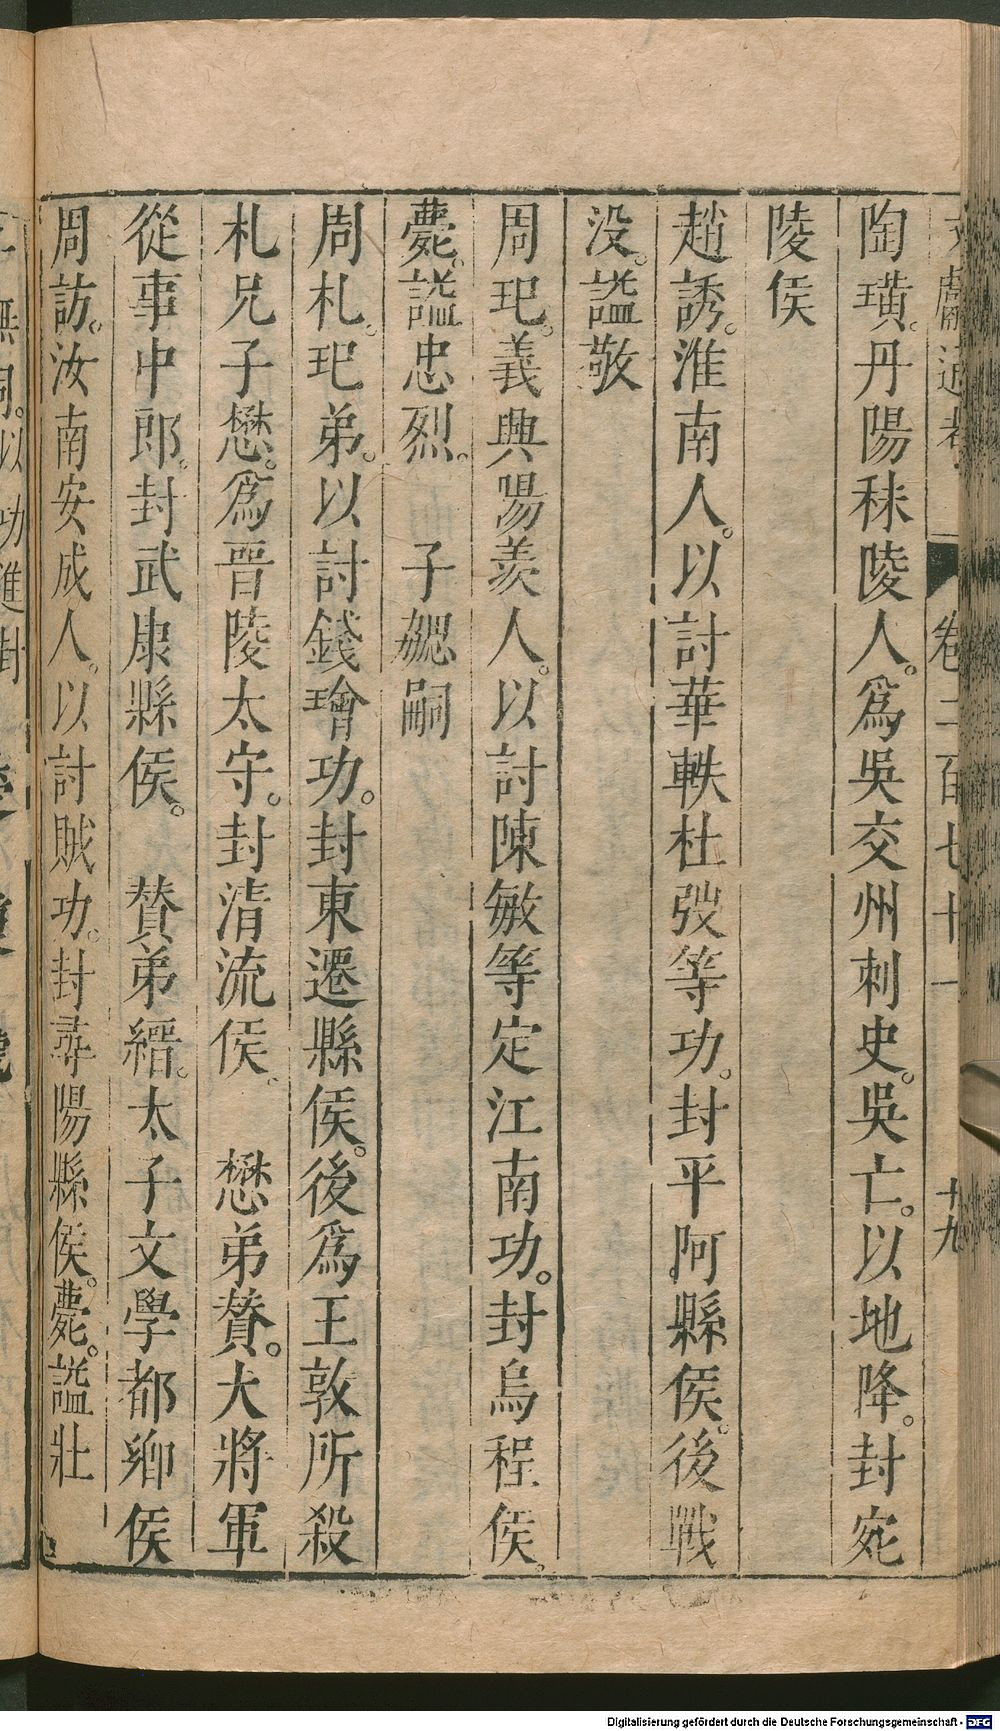 文獻通考 卷二百七十一 十九
陶璜。丹陽秣陵人。爲吳交州刺史。吳亡。以地降。封宛
陵侯
趙誘。淮南人。以討華軼杜弢等功。封平阿縣侯。後戰
没。謚敬
周玘。義興陽羨人。以討陳敏等定江南功。封烏程侯。
薨。謚忠烈。 子勰嗣
周札。玘弟。以討錢璯功。封東遷縣侯。後爲王敦所殺
札兄子懋。爲晉陵太守。封清流侯。 懋弟贊。大將軍
從事中郎。封武康縣侯。 贊弟縉。太子文學都鄉侯
周訪。汝南安成人。以討賊功。封尋陽縣侯。薨。謚壯
無嗣。以功進封
Digitalisierung gefördert durch die Deutsche Forschungsgemeinschaft - DFG